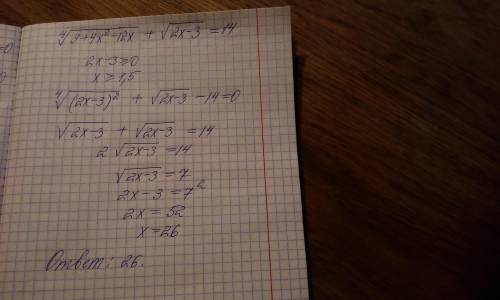 ⁴√(9+4x²-12x) + √(2x-3) = 14
2x-3 ≥ 0
x ≥ 1,5
⁴√((2x-3)²) + √(2x-3) - 14 = 0
√(2x-3) + √(2x-3) = 14
2√(2x-3) = 14
√(2x-3) = 7
2x-3 = 7²
2x = 52
x = 26
Ответ: 26.